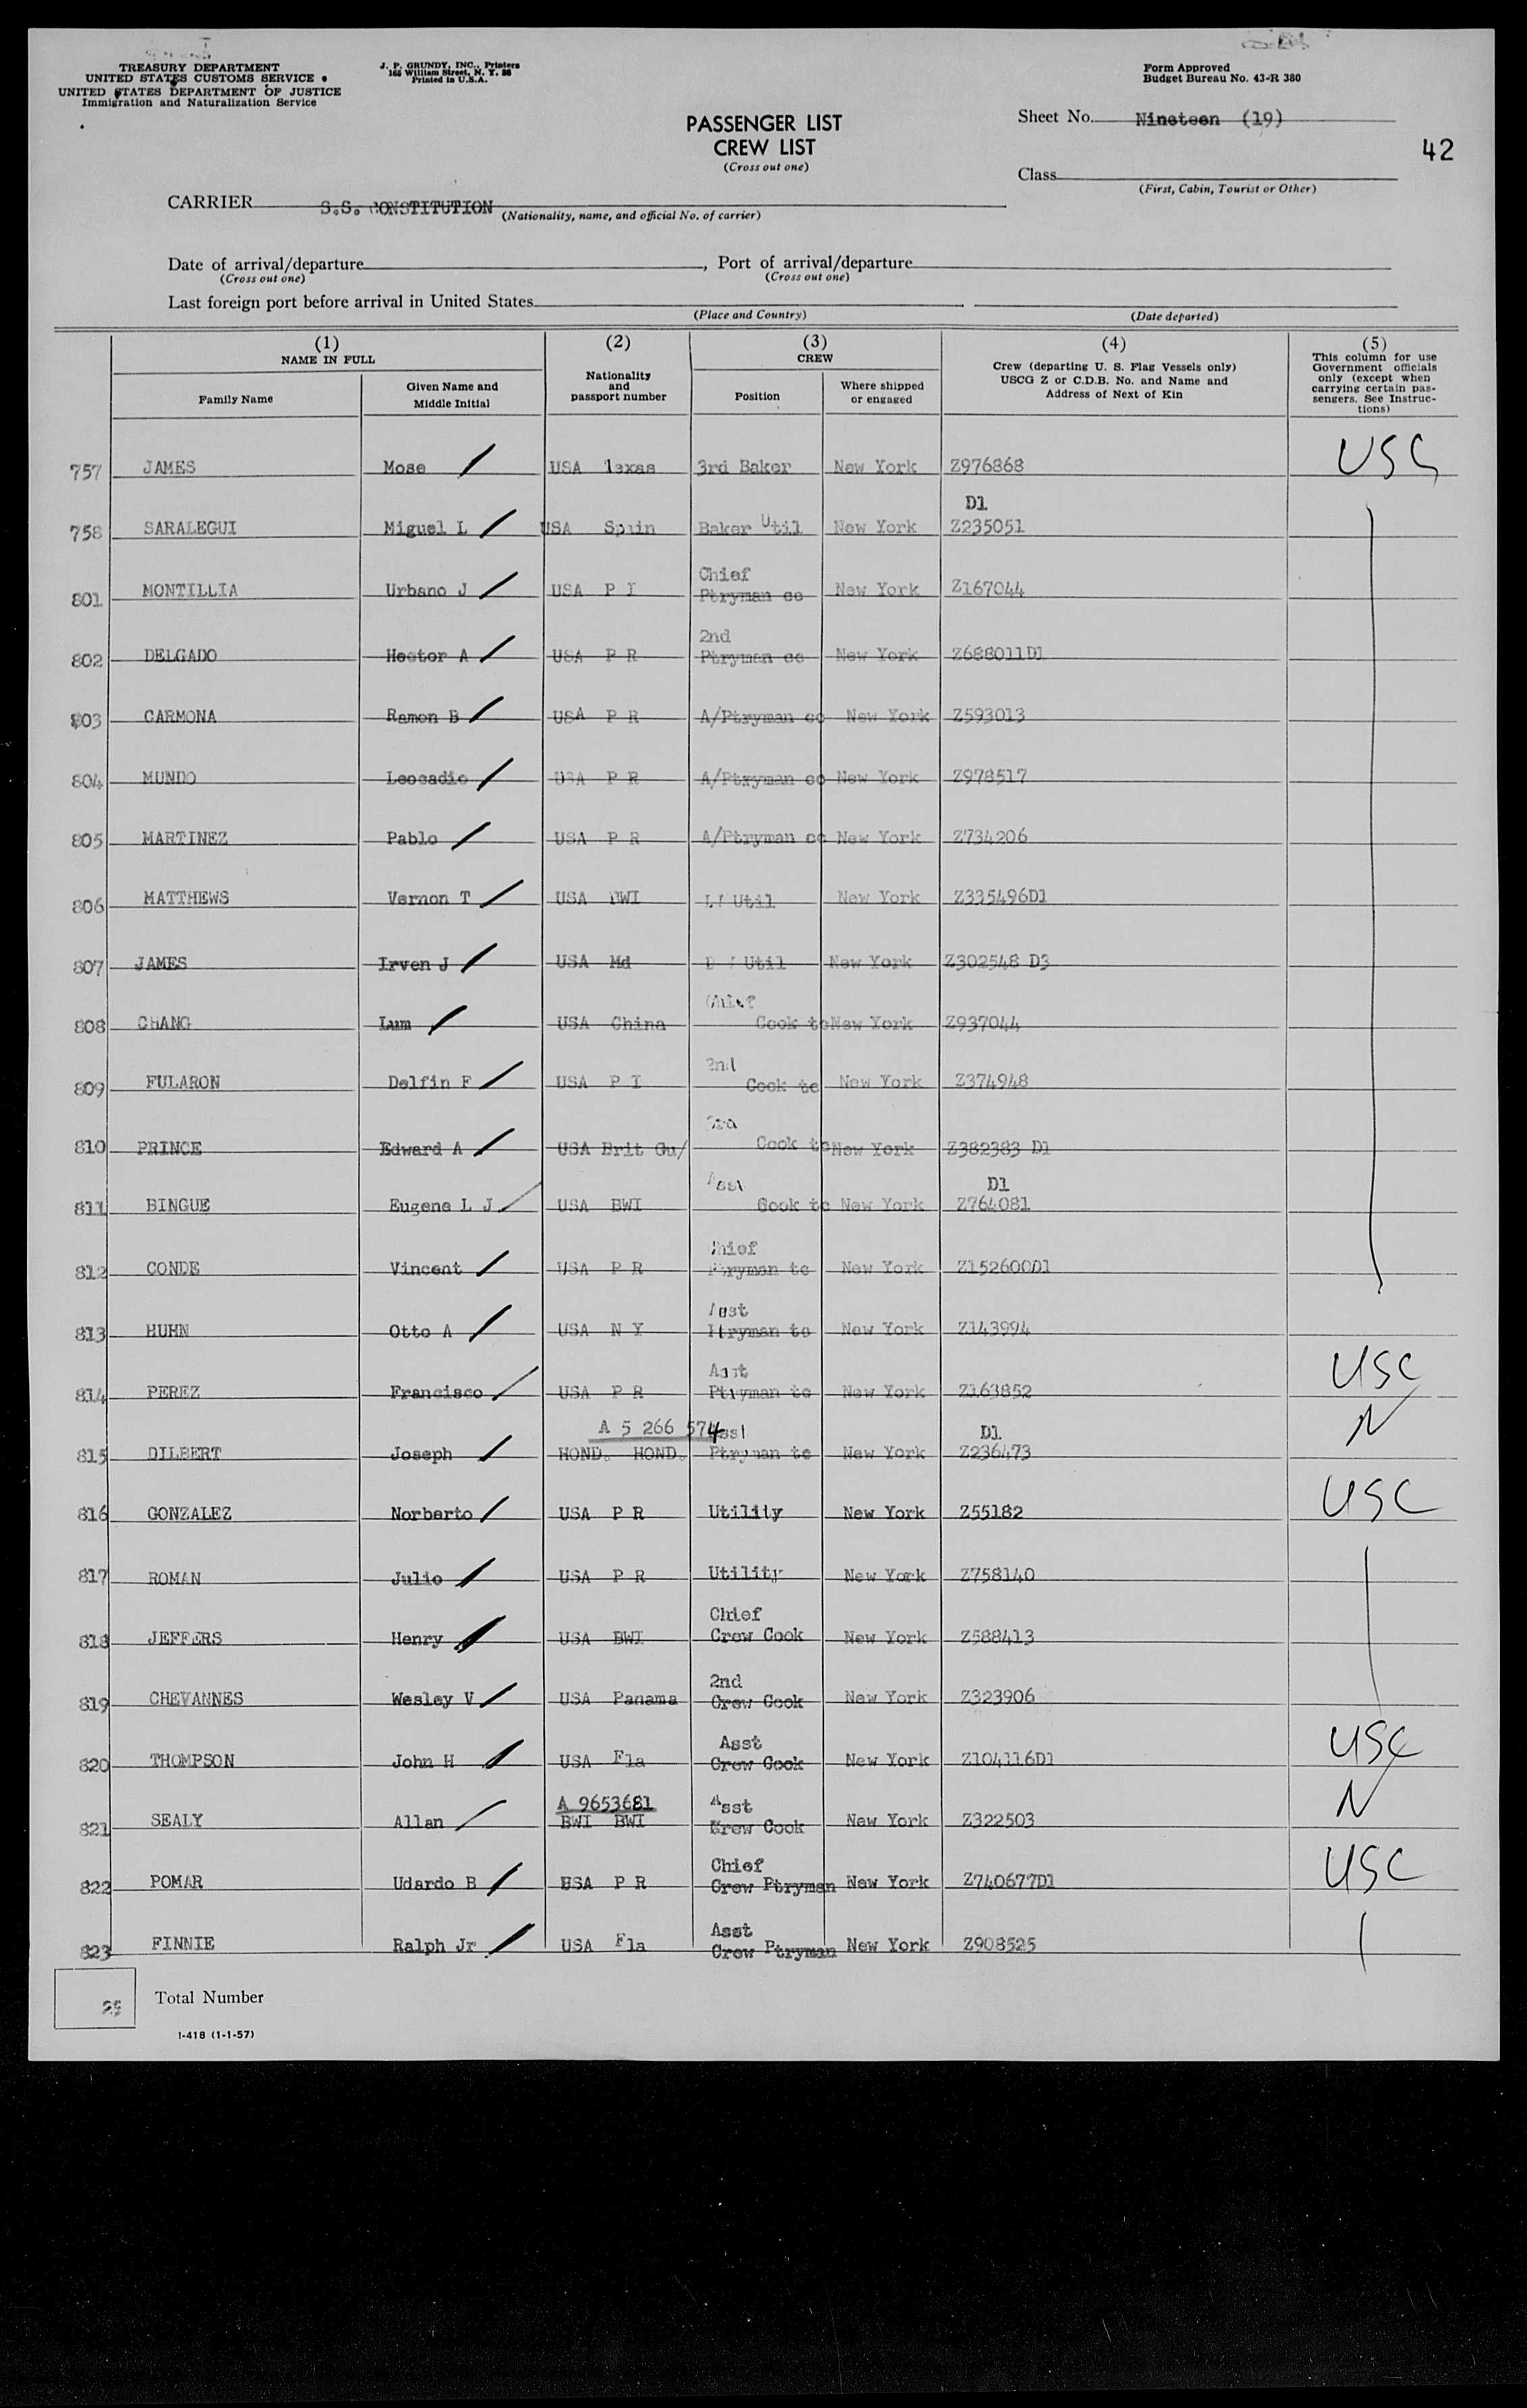 TREASURY DEPARTMENT
UNITED STATES CUSTOMS SERVICE
UNITED STATES DEPARTMENT OF JUSTICE
Immigration and Naturalization Service
J. P. GRUNDY, INC., Printers
Printed in U.S.A.
Form Approved
Budget Bureau No. 43-R 380
PASSENGER LIST
CREW LIST
(Cross out one)
Sheet No. Nineteen (19)
42
Class
(First, Cabin, Tourist or Other)
CARRIER S.S. CONSTITUTION
(Nationality, name, and official No. of carrier)
Date of arrival/departure , Port of arrival/departure
(Cross out one) (Cross out one)
Last foreign port before arrival in United States
(Place and Country) (Date departed)
(1) NAME IN FULL
Family Name
Given Name and Middle Initial
(2) Nationality and passport number
(3) CREW
Position
Where shipped or engaged
(4) Crew (departing U. S. Flag Vessels only)
USCG Z or C.D.B. No. and Name and
Address of Next of Kin
(5) This column for use
Government officials
only (except when
carrying certain pas-
sengers. See Instruc-
tions)
757 JAMES Mose USA Texas 3rd Baker New York Z976868 USC
D1
758 SARALEGUI Miguel L USA Spain Baker Util New York Z235051
Chief
801 MONTILLIA Urbano J USA P I Ptryman cc New York Z167044
2nd
802 DELGADO Hector A USA P R Ptryman cc New York Z688011D1
803 CARMONA Ramon B USA P R A/Ptryman cc New York Z593013
804 MUNDO Leocadio USA P R A/Ptryman cc New York Z978517
805 MARTINEZ Pablo USA P R A/Ptryman cc New York Z734206
806 MATTHEWS Vernon T USA BWI Util New York Z335496D1
807 JAMES Irven J USA Md Util New York Z302548 D3
Chief
808 CHANG Lum USA China Cook tc New York Z937044
2nd
809 FULARON Delfin F USA P I Cook tc New York Z374948
3rd
810 PRINCE Edward A USA Brit Gu/ Cook tc New York Z382383 D1
Asst D1
811 BINGUE Eugene L J USA BWI Cook tc New York Z764081
Chief
812 CONDE Vincent USA P R Ptryman tc New York Z152600D1
Asst
813 HUHN Otto A USA N Y Ptryman tc New York Z143994
Asst
814 PEREZ Francisco USA P R Ptryman tc New York Z163852 USC
A 5 266 574 Asst D1
815 DILBERT Joseph HOND. HOND. Ptryman tc New York Z236473 N
816 GONZALEZ Norberto USA P R Utility New York Z55182 USC
817 ROMAN Julio USA P R Utility New York Z758140
Chief
818 JEFFERS Henry USA BWI Crew Cook New York Z588413
2nd
819 CHEVANNES Wesley V USA Panama Crew Cook New York Z323906
Asst
820 THOMPSON John H USA Fla Crew Cook New York Z104116D1 USC
A 9653681 Asst
821 SEALY Allan BWI BWI Crew Cook New York Z322503 N
Chief
822 POMAR Udardo B USA P R Crew Ptryman New York Z740677D1 USC
Asst
823 FINNIE Ralph Jr USA Fla Crew Ptryman New York Z908525
25 Total Number
I-418 (1-1-57)